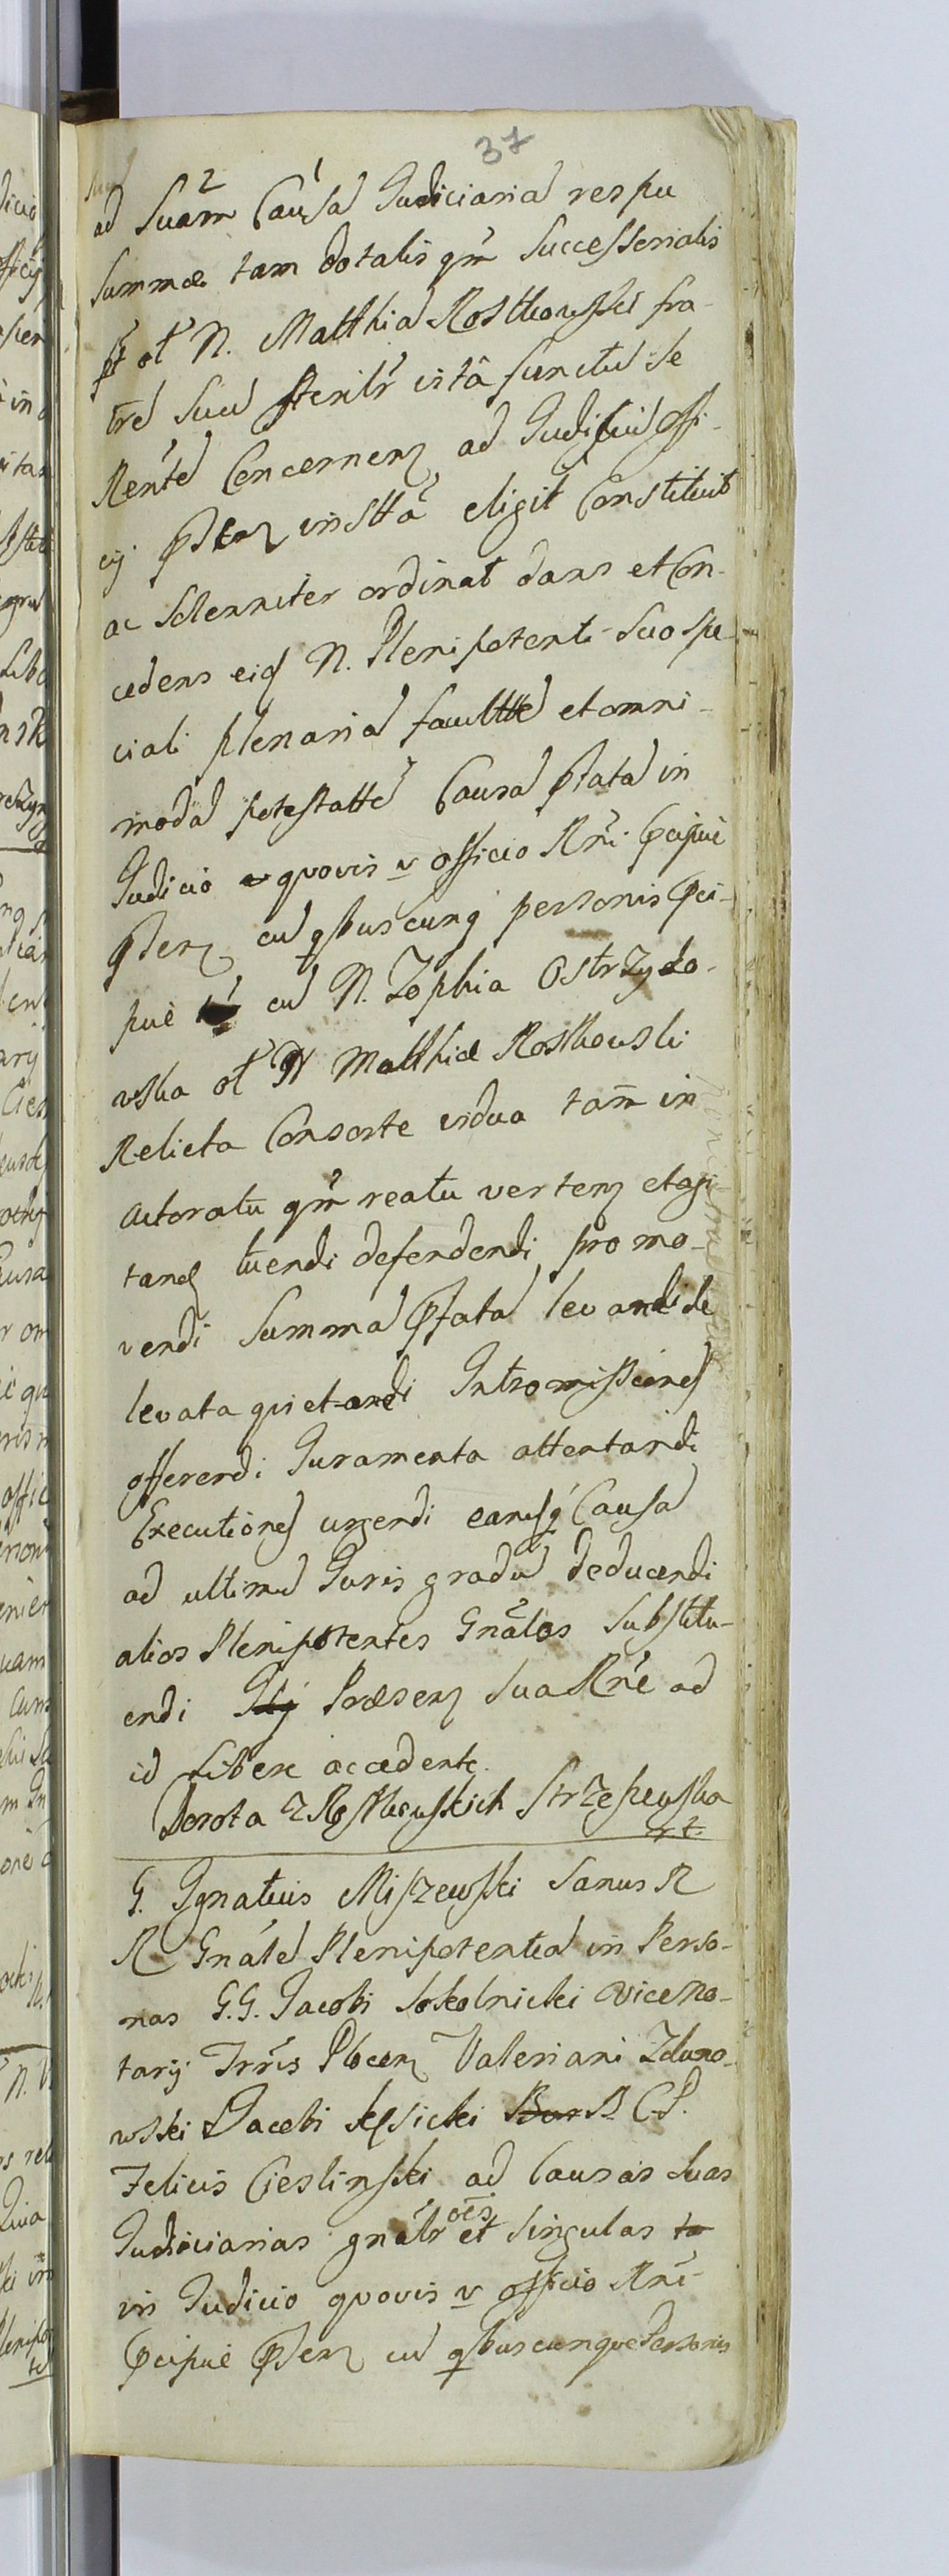 37
ad Suam Causã Judiciariã respu
summæ tam dotalis qm̃ Successorialis
pt ol N. Matthiã Rostkowski fra-
trẽ suũ sterilr vitâ functũ se
Rentẽ Concernen ad Judiciũ Offi-
cij pten institã eligit Constituit
ac solenniter ordinat dans et Con-
cedens eid N. Plenipotenti suo spe-
ciali plenariã facultttẽ et omni-
modã potestattẽ Causã pfatã in
Judicio quovis v officio Rni pcipuè
pten cũ qbuscunq personis pci-
puè cũ N. Zophia Ostrzydo-
wska ol N Matthiæ Rostkowski
Relicta Consorte vidua tam in
Actoratu qm̃ reatu verten et agi-
tand tuendi defendendi promo-
vendi Summã pfatã levandi de
levata quietandi Intromissionẽ
offerendi Juramenta attentandi
Executionẽ urgendi eamq Causã
ad ultimũ Juris gradũ deducendi
alios Plenipotentes Gnãles Substitu-
endi Præsen sua Rne ad
id Libere accedente.
Dorota z Rostkowskich Strzeszewska
G. Ignatius Miszewski Sanus R
R Gnãlẽ Plenipotentiã in Perso-
nas G.G. Jacobi Sokolnicki Viceno-
tarij Trris Plocen Valeriani Zduno-
wski Jacobi Kęsicki Bur B C P.
Felicis Cieslinski ad Causas Suas
Judiciarias gnãlr oẽs et Singulas ta
in Judicio quovis v officio Rni
pcipuè pten cũ qbuscunque Personis